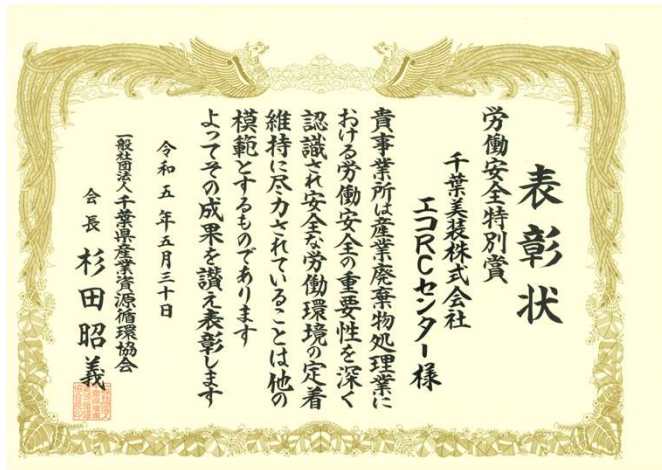 表彰状
労働安全特別賞
千葉美装株式会社
エコRCセンター様
貴事業所は産業廃棄物処理業に
おける労働安全の重要性を深く
認識され安全な労働環境の定着
維持に尽力されていることは他の
模範とするものであります
よってその成果を讃え表彰します
令和五年五月三十日
一般社団法人千葉県産業資源循環協会
会長 杉田昭義